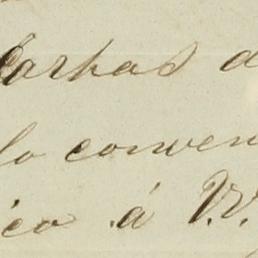 Carhas d
lo conven
ico á V.